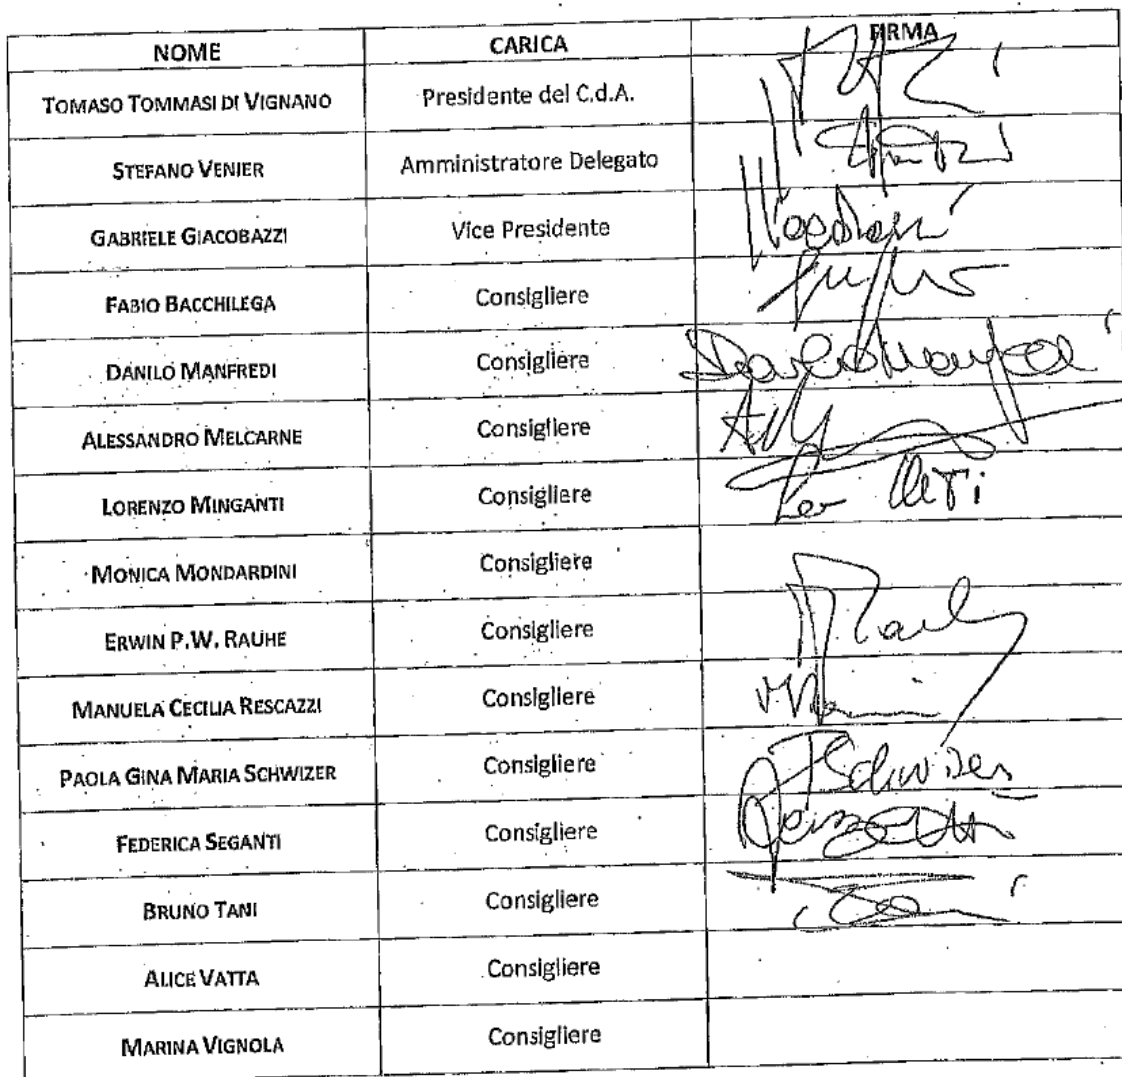 NOME CARICA FIRMA
TOMASO TOMMASI DI VIGNANO Presidente del C.d.A.
STEFANO VENIER Amministratore Delegato
GABRIELE GIACOBAZZI Vice Presidente
FABIO BACCHILEGA Consigliere
DANILO MANFREDI Consigliere
ALESSANDRO MELCARNE Consigliere
LORENZO MINGANTI Consigliere
MONICA MONDARDINI Consigliere
ERWIN P.W. RAUHE Consigliere
MANUELA CECILIA RESCAZZI Consigliere
PAOLA GINA MARIA SCHWIZER Consigliere
FEDERICA SEGANTI Consigliere
BRUNO TANI Consigliere
ALICE VATTA Consigliere
MARINA VIGNOLA Consigliere